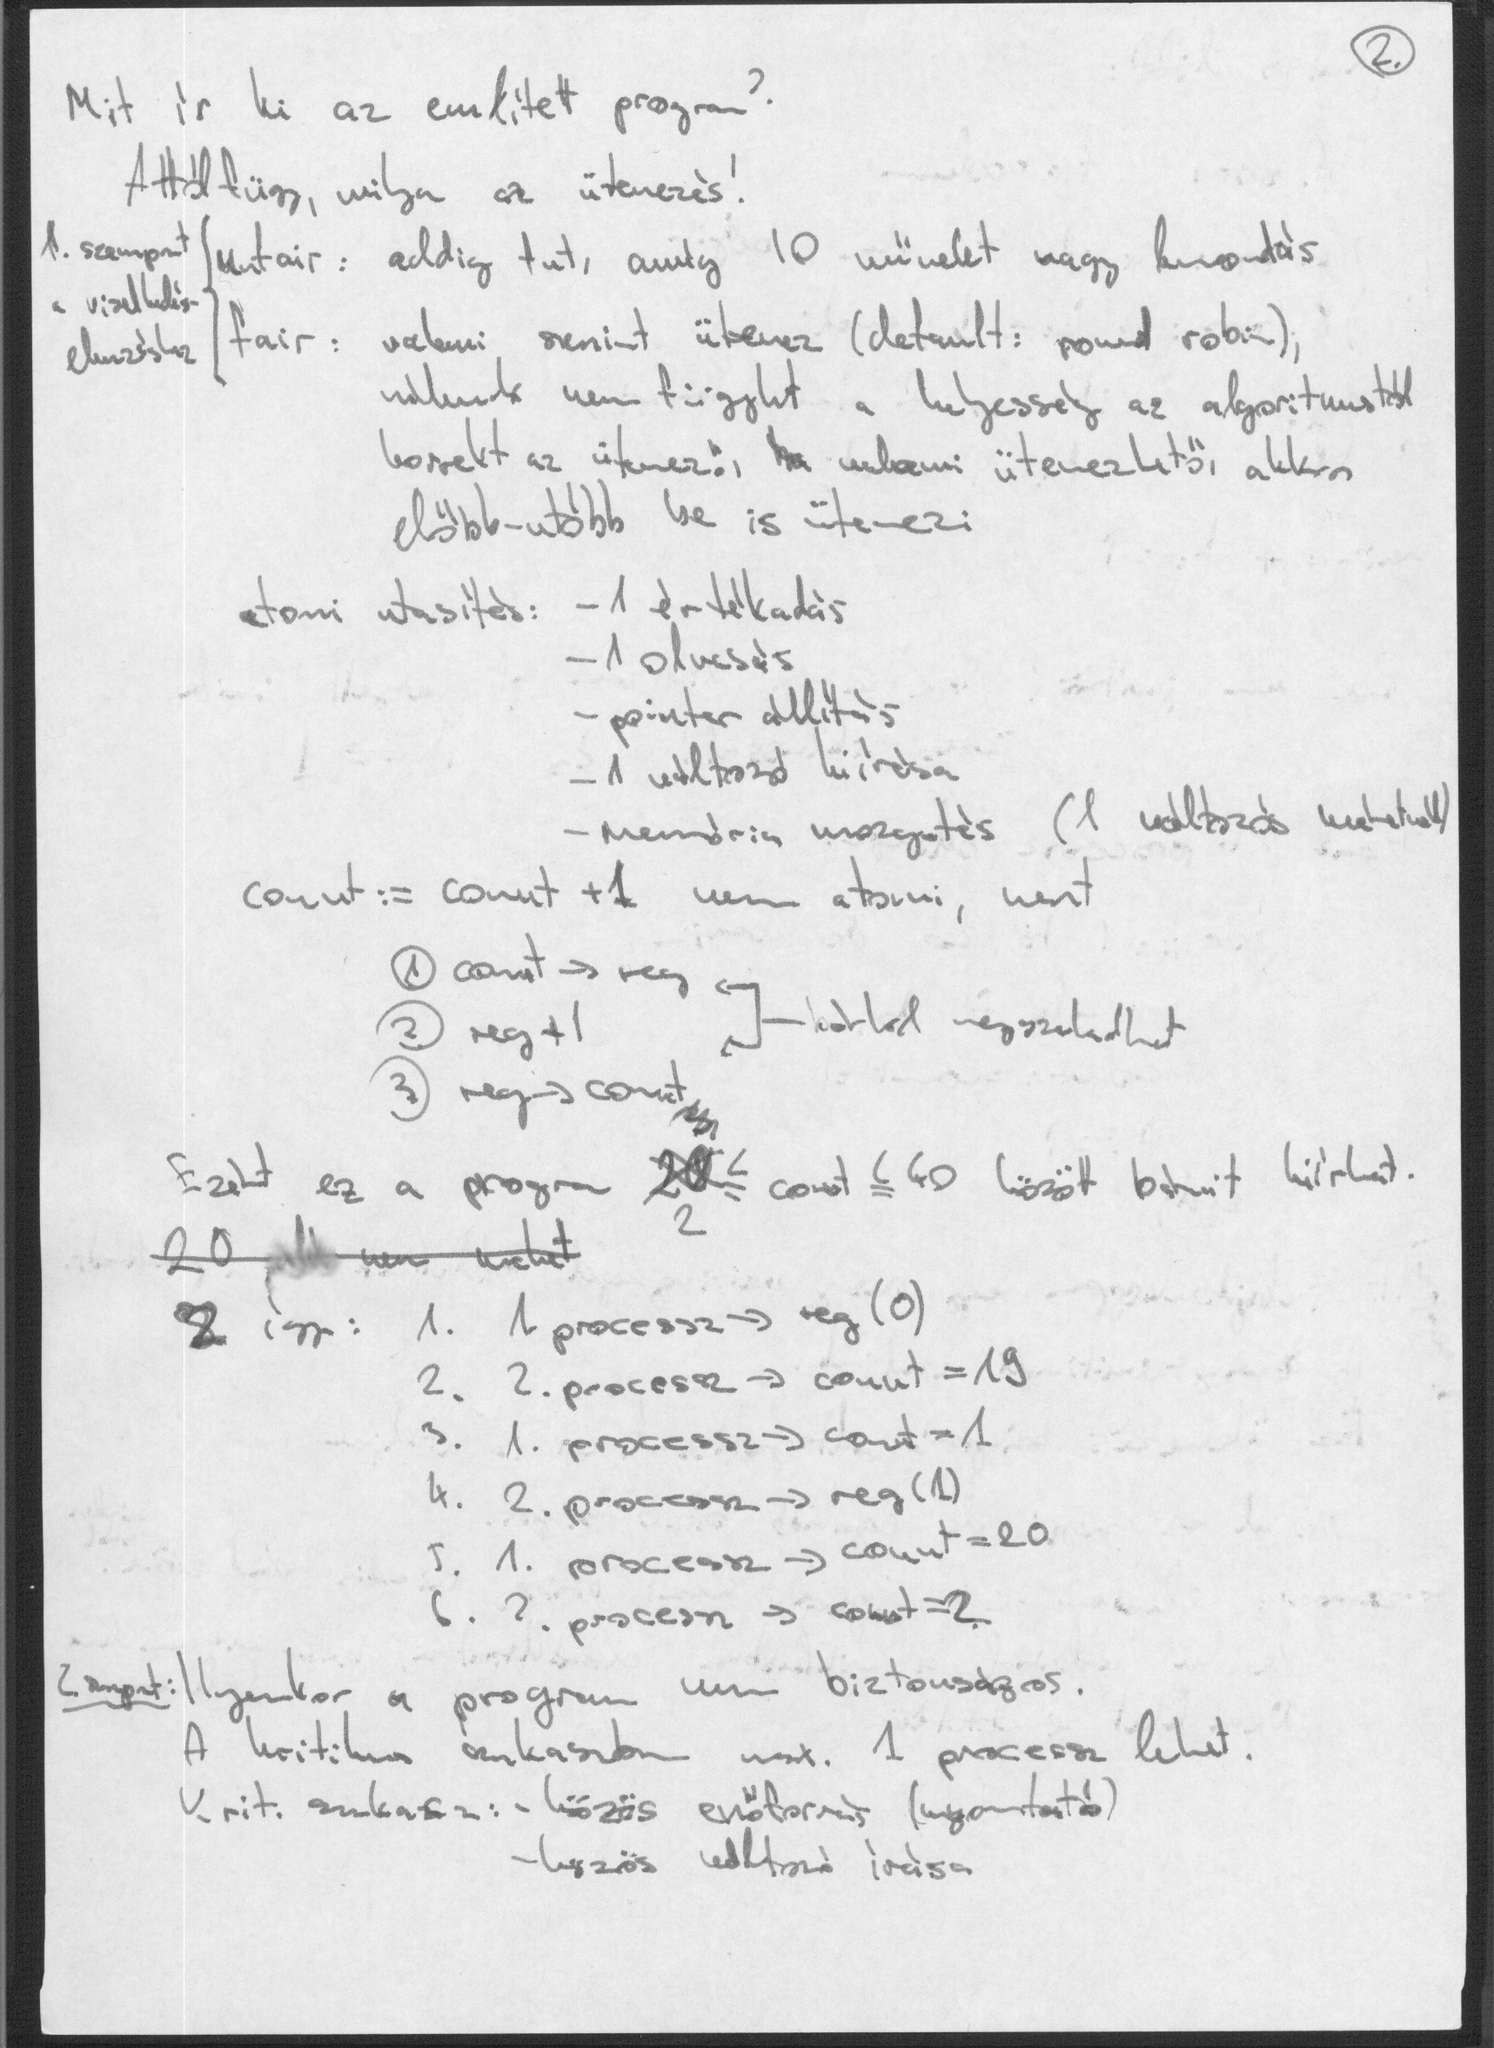 2.
Mit ír ki az említett program?
Attól függ, milyen az ütemezés!
1. szempont a viselkedéselemzéshez
unfair: addig fut, amíg IO művelet vagy lemondás
fair: valami szerint ütemez (default: round robin),
nálunk nem függhet a helyesség az algoritmustól
korrekt az ütemező, ha valami ütemezhető, akkor
előbb-utóbb be is ütemezi
atomi utasítás: - 1 értékadás
- 1 olvasás
- pointer állítás
- 1 változó kiírása
- memória mozgatás (1 változós
count := count + 1 nem atomi, mert
① count → reg
② reg+1
③ reg → count
bárhol megszakadhat
Ezért ez a program 2 ≤ count ≤ 40 között bármit kiírhat.
20 alá nem mehet
2 így: 1. 1. processz → reg (0)
2. 2. processz → count = 19
3. 1. processz → count = 1
4. 2. processz → reg (1)
5. 1. processz → count = 20
6. 2. processz → count = 2
2. szempont: Ilyenkor a program nem biztonságos.
A kritikus szakaszban max. 1 processz lehet.
Krit. szakasz: - közös erőforrás (nyomtató)
- közös változó írása